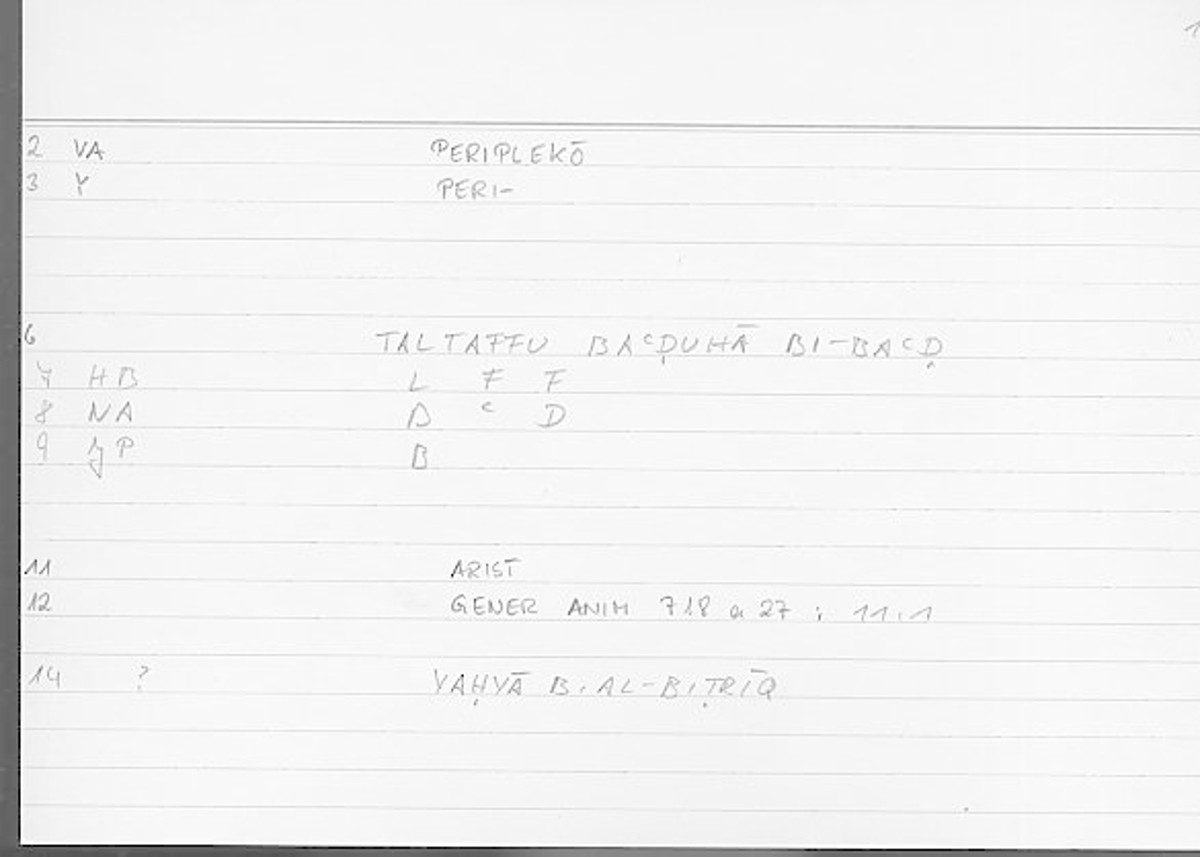 1
2 VA PERIPLEKŌ
3 Y PERI-
6 TALTAFFU BAʿḌUHĀ BI-BAʿḌ
7 HB L F F
8 NA B ʿ D
9 JP B
11 ARIST
12 GENER ANIM 718 a 27 ; 11.1
14 ? YAḤYĀ B. AL-BIṬRĪQ